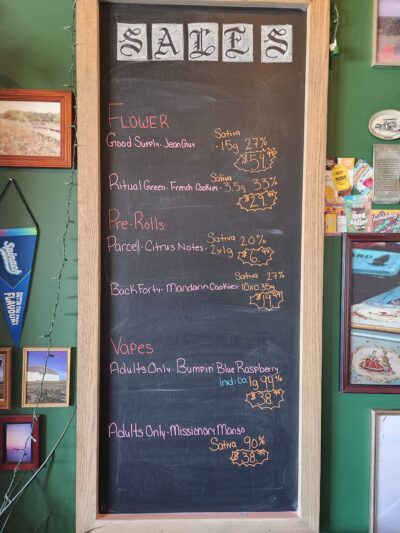 SALES
FLOWER
Sativa
Good Supply - Jean Guy - 15g 27%
$59.
Ritual Green - French Cookies - Sativa 3.5g 33%
Pre-Rolls
Parcel - Citrus Notes - 2x1g Sativa 20%
Sativa 27%
Back Forty - Mandarin Cookies - 10x0.35g
Vapes
Adults Only - Bumpin' Blue Raspberry
Indica 1g 94%
$38.99
Adults Only - Missionary Mango
Sativa 90%
$38.99
Spinach